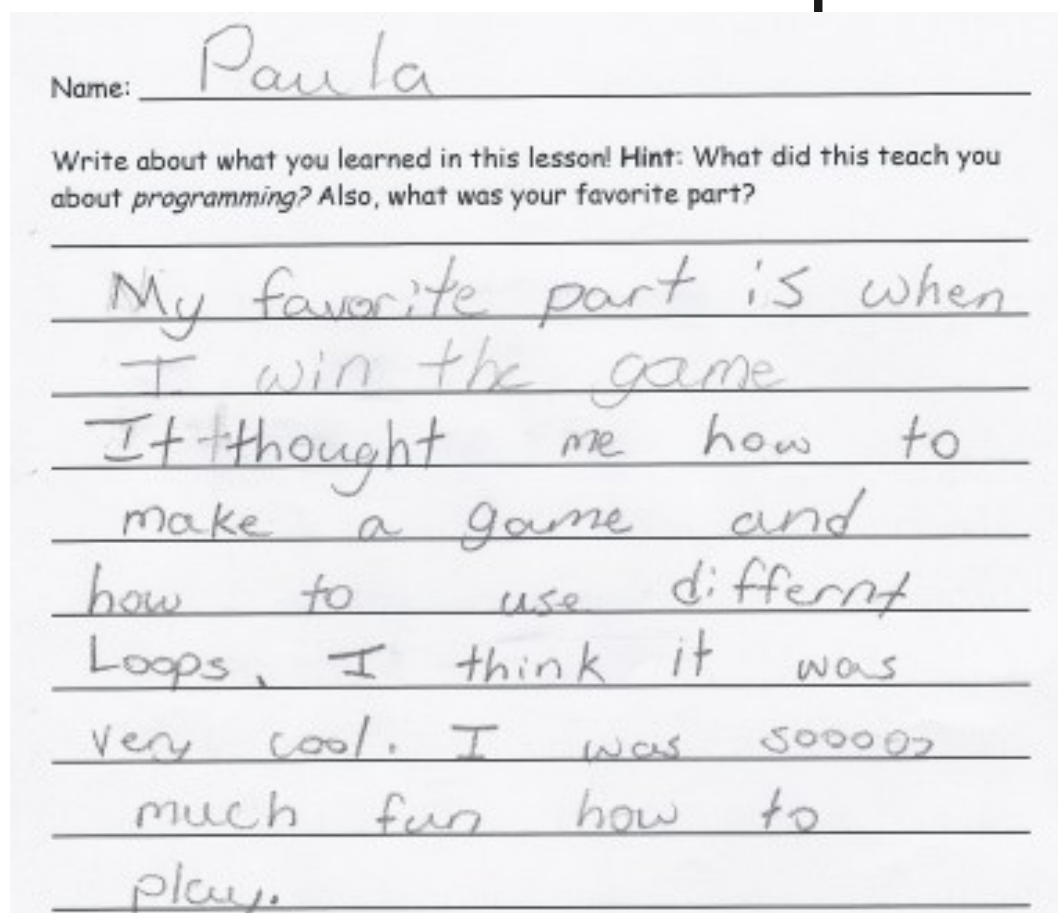 Name: Paula
Write about what you learned in this lesson! Hint: What did this teach you
about programming? Also, what was your favorite part?
My favorite part is when
I win the game
It thought me how to
make a game and
how to use differnt
Loops. I think it was
very cool. I was sooooo
much fun how to
play.